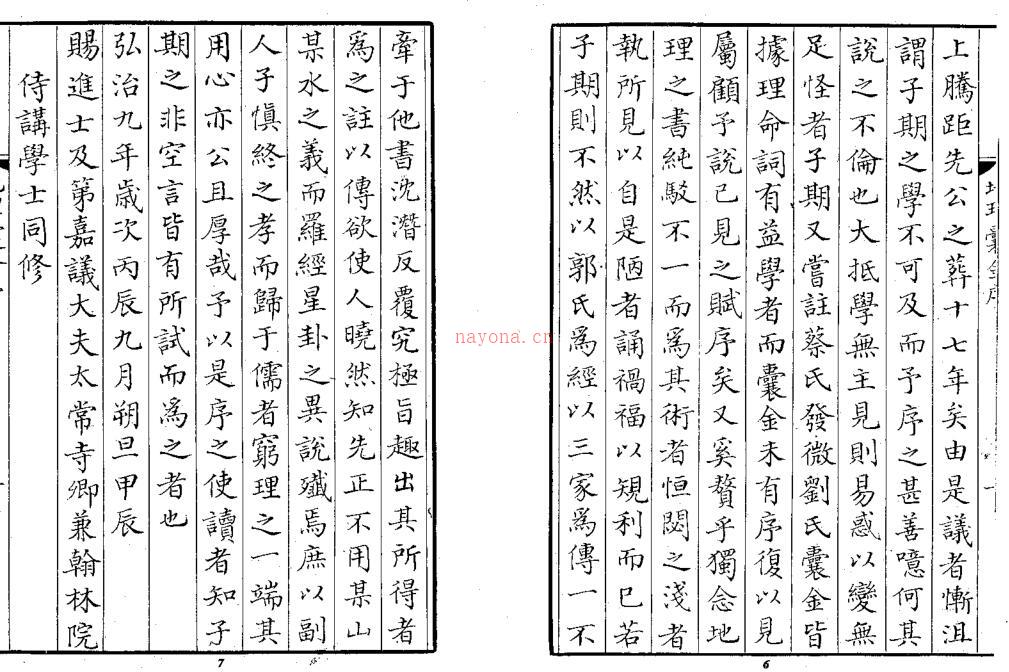 上騰距先公之葬十七年矣由是議者慚沮
謂子期之學不可及而予序之甚善噫何其
說之不倫也大抵學無主見則易惑以變無
足怪者子期又嘗註蔡氏發微劉氏囊金皆
據理命詞有益學者而囊金未有序復以見
屬顧予說已見之賦序矣又奚贅乎獨念地
理之書純駁不一而為其術者恒閟之淺者
執所見以自是陋者誦禍福以規利而已若
子期則不然以郭氏為經以三家為傳一不
6
牽于他書沈潛反覆究極旨趣出其所得者
為之註以傳欲使人曉然知先正不用某山
某水之義而羅經星卦之異說殱焉庶以副
人子慎終之孝而歸于儒者窮理之一端其
用心亦公且厚哉予以是序之使讀者知子
期之非空言皆有所試而為之者也
弘治九年歲次丙辰九月朔旦甲辰
賜進士及第嘉議大夫太常寺卿兼翰林院
侍講學士同修
7
nayona.cn